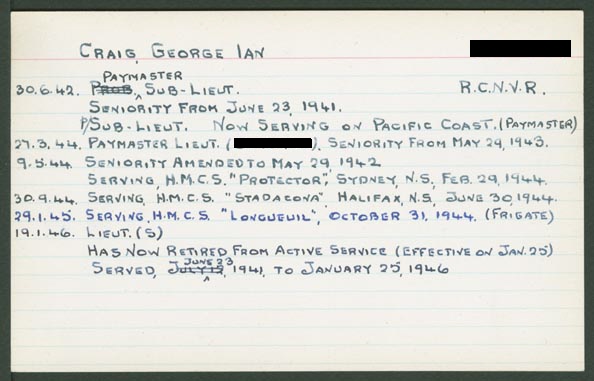 CRAIG, GEORGE IAN
PAYMASTER
30.6.42. PROB. SUB-LIEUT. R.C.N.V.R.
SENIORITY FROM JUNE 23, 1941.
P/SUB-LIEUT. NOW SERVING ON PACIFIC COAST. (PAYMASTER)
27.3.44. PAYMASTER LIEUT. ( ). SENIORITY FROM MAY 29, 1943.
9.5.44. SENIORITY AMENDED TO MAY 29, 1942
SERVING, H.M.C.S. "PROTECTOR", SYDNEY, N.S, FEB. 29, 1944.
30.9.44. SERVING, H.M.C.S. "STADACONA", HALIFAX, N.S, JUNE 30, 1944.
29.1.45. SERVING, H.M.C.S. "LONGUEUIL", OCTOBER 31, 1944. (FRIGATE)
19.1.46. LIEUT. (S)
HAS NOW RETIRED FROM ACTIVE SERVICE (EFFECTIVE ON JAN. 25)
JUNE 23
SERVED, JULY 19, 1941, TO JANUARY 25, 1946